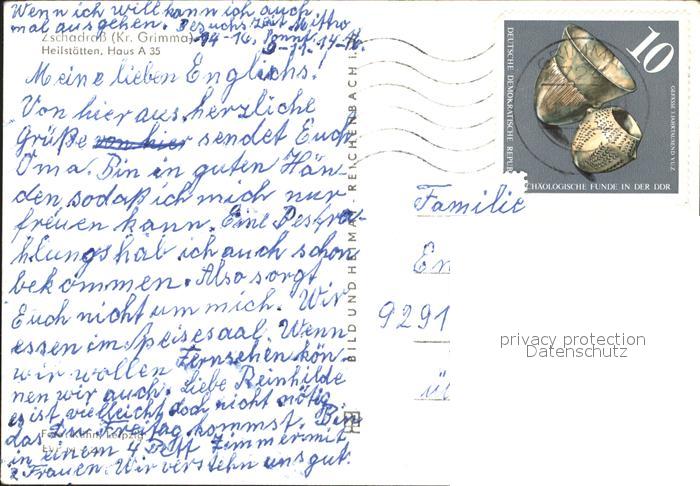 Wenn ich will kann ich auch
mal ausgehen. Besuchszeit Mittw.
Zschadraß (Kr. Grimma) 14-16. Sonnt. 14-16.
Heilstätten, Haus A 35 9-11.
Meine lieben Englichs!
Von hier aus herzliche
Grüße von hier sendet Euch
Oma. Bin in guten Hän-
den, sodaß ich mich nur
freuen kann. Eine Bestra-
hlung hab ich auch schon
bekommen. Also sorgt
Euch nicht um mich. Wir
essen im Speisesaal. Wenn
wir wollen Fernsehen kön-
nen wir auch. Liebe Reinhilde
es ist vielleicht doch nicht nötig
das Du Freitag kommst. Bin
in einem 4 Bett Zimmer mit
2 Frauen. Wir verstehn uns gut.
BILD UND HEIMAT REICHENBACH i.
10
DEUTSCHE DEMOKRATISCHE REPUBL
GEFÄSSE 1. JAHRTAUSEND V.U.Z.
CHÄOLOGISCHE FUNDE IN DER DDR
Familie
En
9291
privacy protection
Datenschutz